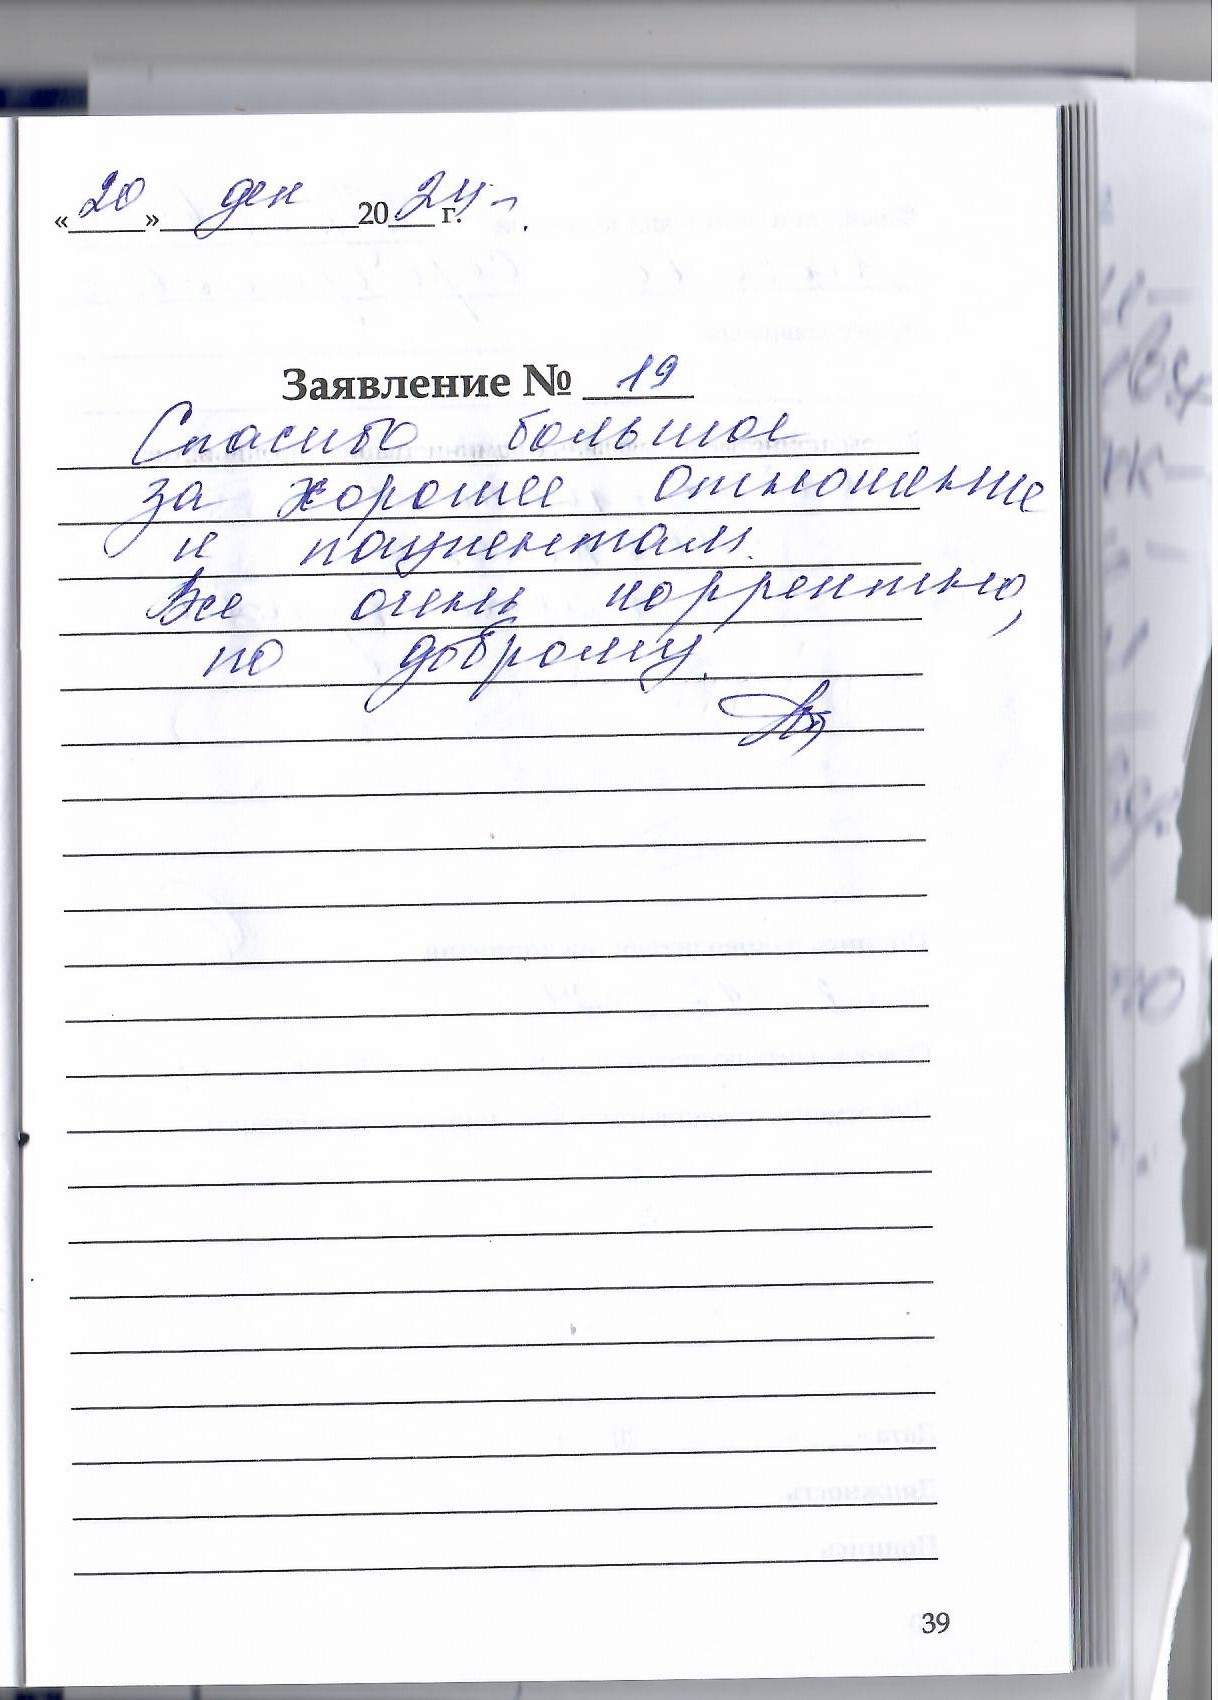 «20» дек 2024 г.
Заявление № 19
Спасибо большое
за хорошее отношение
к пациентам.
Все очень корректно,
по доброму.
39